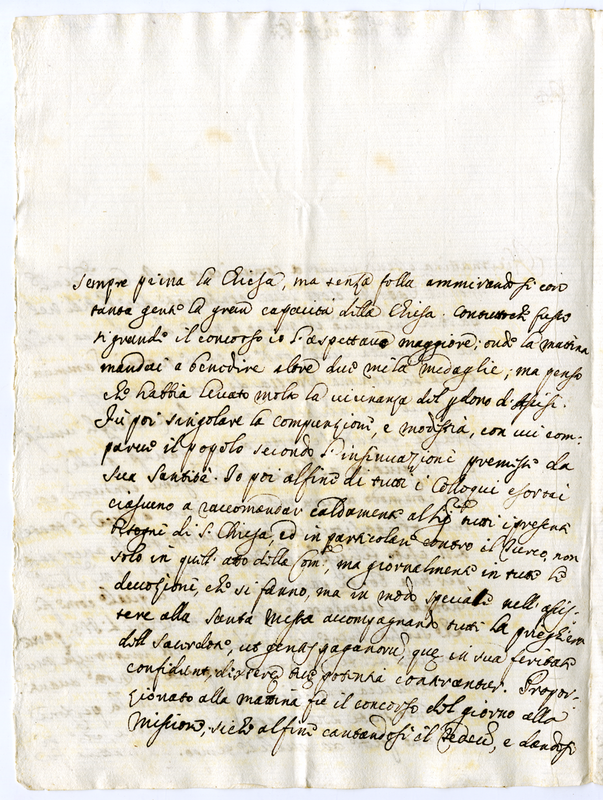 sempre piena la Chiesa, ma senza folla ammirandosi con
tanta gente la gran capacità della Chiesa. Contuttoche fusse
sì grande il concorso io l'aspettavo maggiore; onde la matina
mandai a benedire altre due mila medaglie; ma penso
che habbia levato molto la vicinanza del pdono d'Asisi.
Fù poi singolare la compunzione, e modestia, con cui com-
parve il popolo secondo l'insinuazioni premesse da
Sua Santità. Io poi alfine di tutti i Colloqui esortai
ciascuno a raccomandar caldamente al Sig.re tutti i presenti
bisogni di S. Chiesa, ed in particolare contro il Turco, non
solo in quell' atto della Com.e, ma giornalmente in tutte le
devozioni, che si fanno, ma in modo speciale nell' assis-
tere alla Santa Messa accompagnando tutti la preghiera
del Sacerdote, ut gentes paganorū, quę in sua feritate
confidunt, dexterę tuę potentia conterantur. Propor-
zionato alla mattina fù il concorso del giorno alla
Missione, siche alfine cantandosi il Te Deū, e dandosi